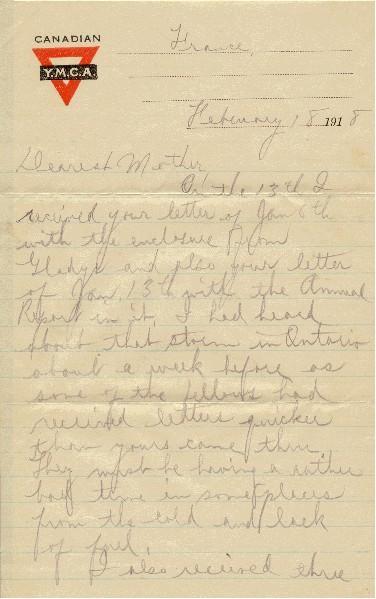 CANADIAN
Y.M.C.A.
France,
February 18 1918
Dearest Mother
On the 13th I
received your letter of Jan 6th
with the enclosure from
Gladys and also your letter
of Jan. 13th with the Annual
Report in it. I had heard
about that storm in Ontario
about a week before as
some of the fellows had
received letters quicker
than yours came thru.
They must be having a rather
bad time in some places
from the cold and lack
of fuel.
I also received three